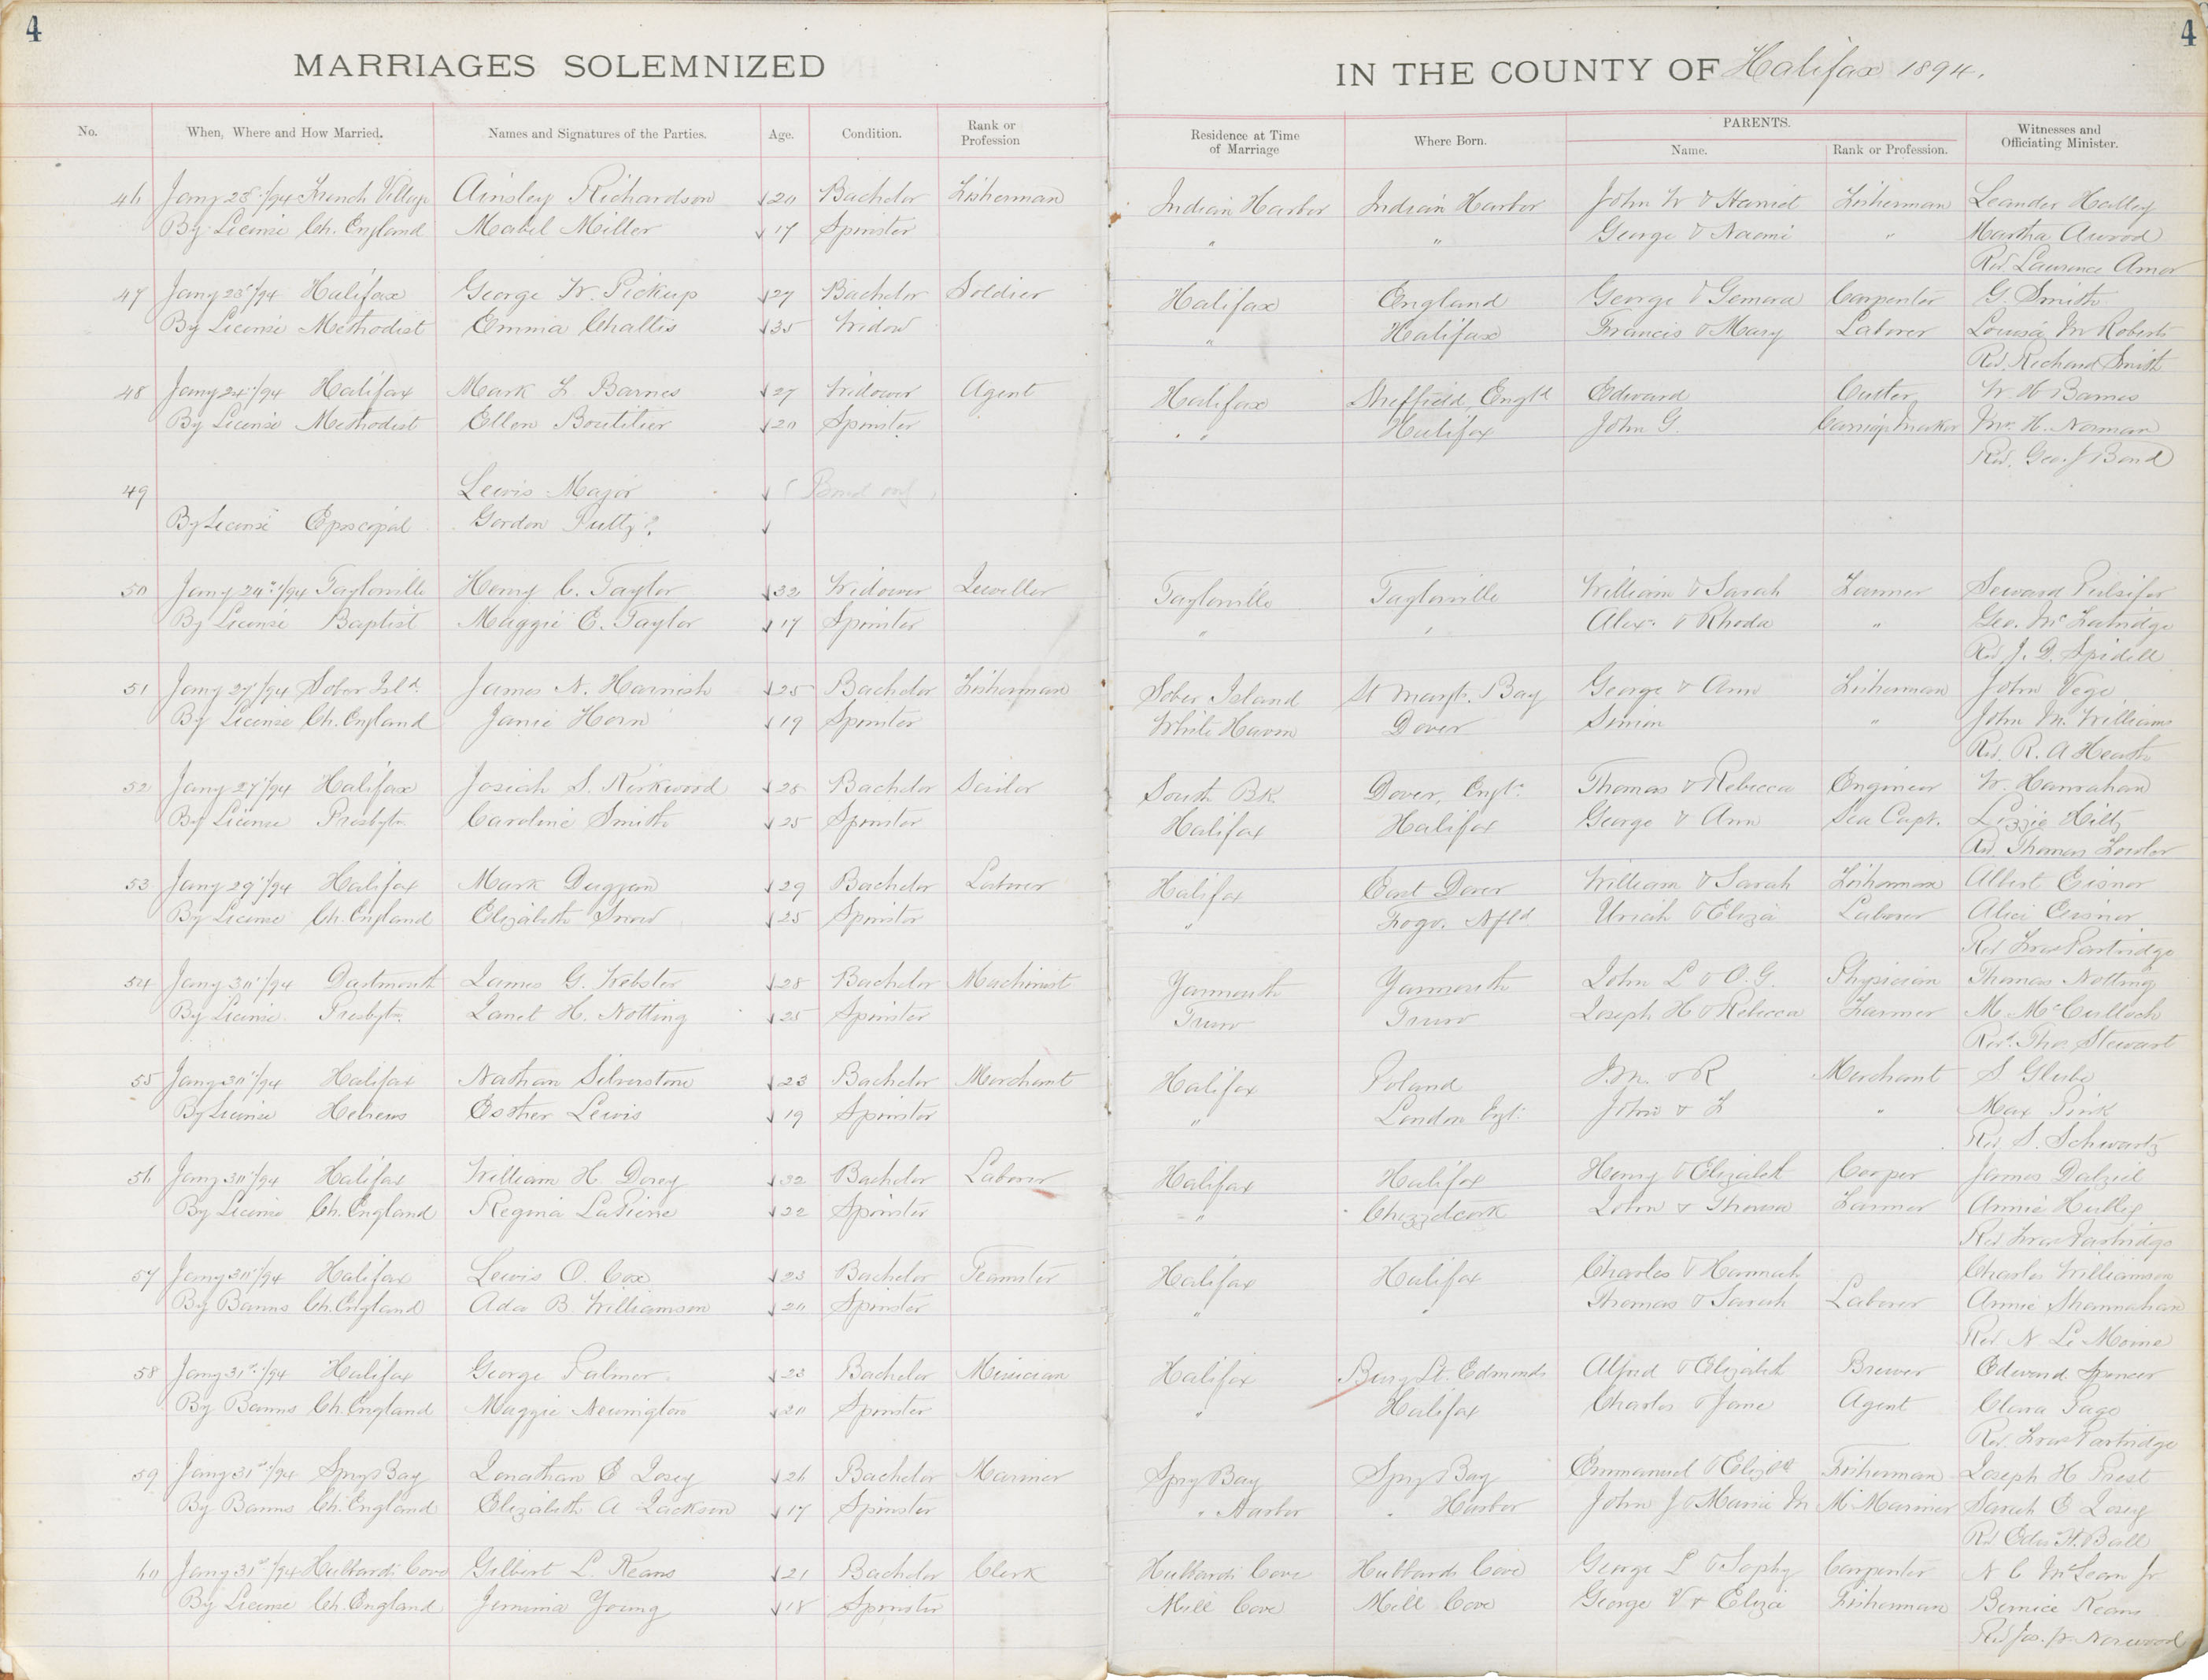 4
MARRIAGES SOLEMNIZED
IN THE COUNTY OF Halifax 1894.
4
No. When, Where and How Married. Names and Signatures of the Parties. Age. Condition. Rank or Profession Residence at Time of Marriage Where Born. PARENTS. Name. Rank or Profession. Witnesses and Officiating Minister.
46 Jany 23 /94 French Village Ainsley Richardson 20 Bachelor Fisherman Indian Harbor Indian Harbor John W & Harriet Fisherman Leander
By License Ch. England Mabel Miller 17 Spinster " " George & Naomi " Martha
Rev. Lawrence Amor
47 Jany 23 /94 Halifax George W. Pickup 27 Bachelor Soldier Halifax England George & Carpenter G. Smith
By License Methodist Emma Challis 35 Widow " Halifax Francis & Mary Laborer Louisa M Roberts
Rev. Richard Smith
48 Jany 24 /94 Halifax Mark F. Barnes 27 Widower Agent Halifax Sheffield, Engld Edward Cutter W. H Barnes
By License Methodist Ellen Boutilier 20 Spinster " Halifax John G. Carriage Maker H. Norman
Rev. Geo. J Bond
49 Lewis Major
By License Episcopal Gordon
50 Jany 24 /94 Taylorville Henry C. Taylor 32 Widower Jeweller Taylorville Taylorville William & Sarah Farmer Seward Pulsifer
By License Baptist Maggie E. Taylor 17 Spinster " " Alex. & Rhoda " Geo.
Rev J. D. Spidell
51 Jany 27 /94 Sober Isld James N. Harnish 25 Bachelor Fisherman Sober Island St Margt. Bay George & Ann Fisherman John Vege
By License Ch. England Janie Horn 19 Spinster White Haven Dover Simon " John M. Williams
Rev. R. A Heath
52 Jany 27 /94 Halifax Josiah S. Kirkwood 28 Bachelor Sailor South BK. Dover, Engl. Thomas & Rebecca Engineer W. Hanrahan
By License Presbytn Caroline Smith 25 Spinster Halifax Halifax George & Ann Sea Capt. Lizzie Hiltz
Rev. Thomas Fowler
53 Jany 29 /94 Halifax Mark Duggan 29 Bachelor Laborer Halifax East Dover William & Sarah Fisherman Albert Eisnor
By License Ch. England Elizabeth Snow 25 Spinster " Fogo. Nfld Uriah & Eliza Laborer Alice Eisnor
Rev Fras Partridge
54 Jany 30 /94 Dartmouth James G. Webster 28 Bachelor Machinist Yarmouth Yarmouth John L & O. G. Physician Thomas Notting
By License Presbytn. Janet H. Notting 25 Spinster Truro Truro Joseph H & Rebecca Farmer M. McCulloch
Rev. Thos. Stewart
55 Jany 30 /94 Halifax Nathan Silverstone 23 Bachelor Merchant Halifax Poland J. M. & R Merchant S. Glube
By License Hebrews Esther Lewis 19 Spinster " London Engl. John & F " Max Pink
Rev S. Schwartz
56 Jany 30 /94 Halifax William H. Dorey 32 Bachelor Laborer Halifax Halifax Henry & Elizabeth Cooper James Dalziel
By License Ch. England Regina LaPierre 22 Spinster " Chezzetcook John & Theresa Farmer Annie Hubley
Rev Fras Partridge
57 Jany 30 /94 Halifax Lewis O. Cox 23 Bachelor Teamster Halifax Halifax Charles & Hannah Charles Williamson
By Banns Ch. England Ada B. Williamson 20 Spinster " " Thomas & Sarah Laborer Annie Shannahan
Rev N. Le Moine
58 Jany 31st /94 Halifax George Palmer 23 Bachelor Musician Halifax Bury St. Edmonds Alfred & Elizabeth Brewer Edward Spencer
By Banns Ch. England Maggie Newington 20 Spinster " Halifax Charles & Jane Agent Clara Page
Rev. Fras Partridge
59 Jany 31st /94 Spry Bay Jonathan E Josey 26 Bachelor Mariner Spry Bay Spry Bay Emmanuel & Elizth Fisherman Joseph H Prest
By Banns Ch. England Elizabeth A Jackson 17 Spinster " Harbor " Harbor John J & Maria M Mariner Sarah E Josey
Rev Edw. H. Ball
60 Jany 31st /94 Hubbards Cove Gilbert L. Keans 21 Bachelor Clerk Hubbards Cove Hubbards Cove George L & Sophy Carpenter N C McLean Jr
By License Ch. England Jemima Young 18 Spinster Mill Cove Mill Cove George V & Eliza Fisherman Bernice Keans
Rev Jas. W. Norwood